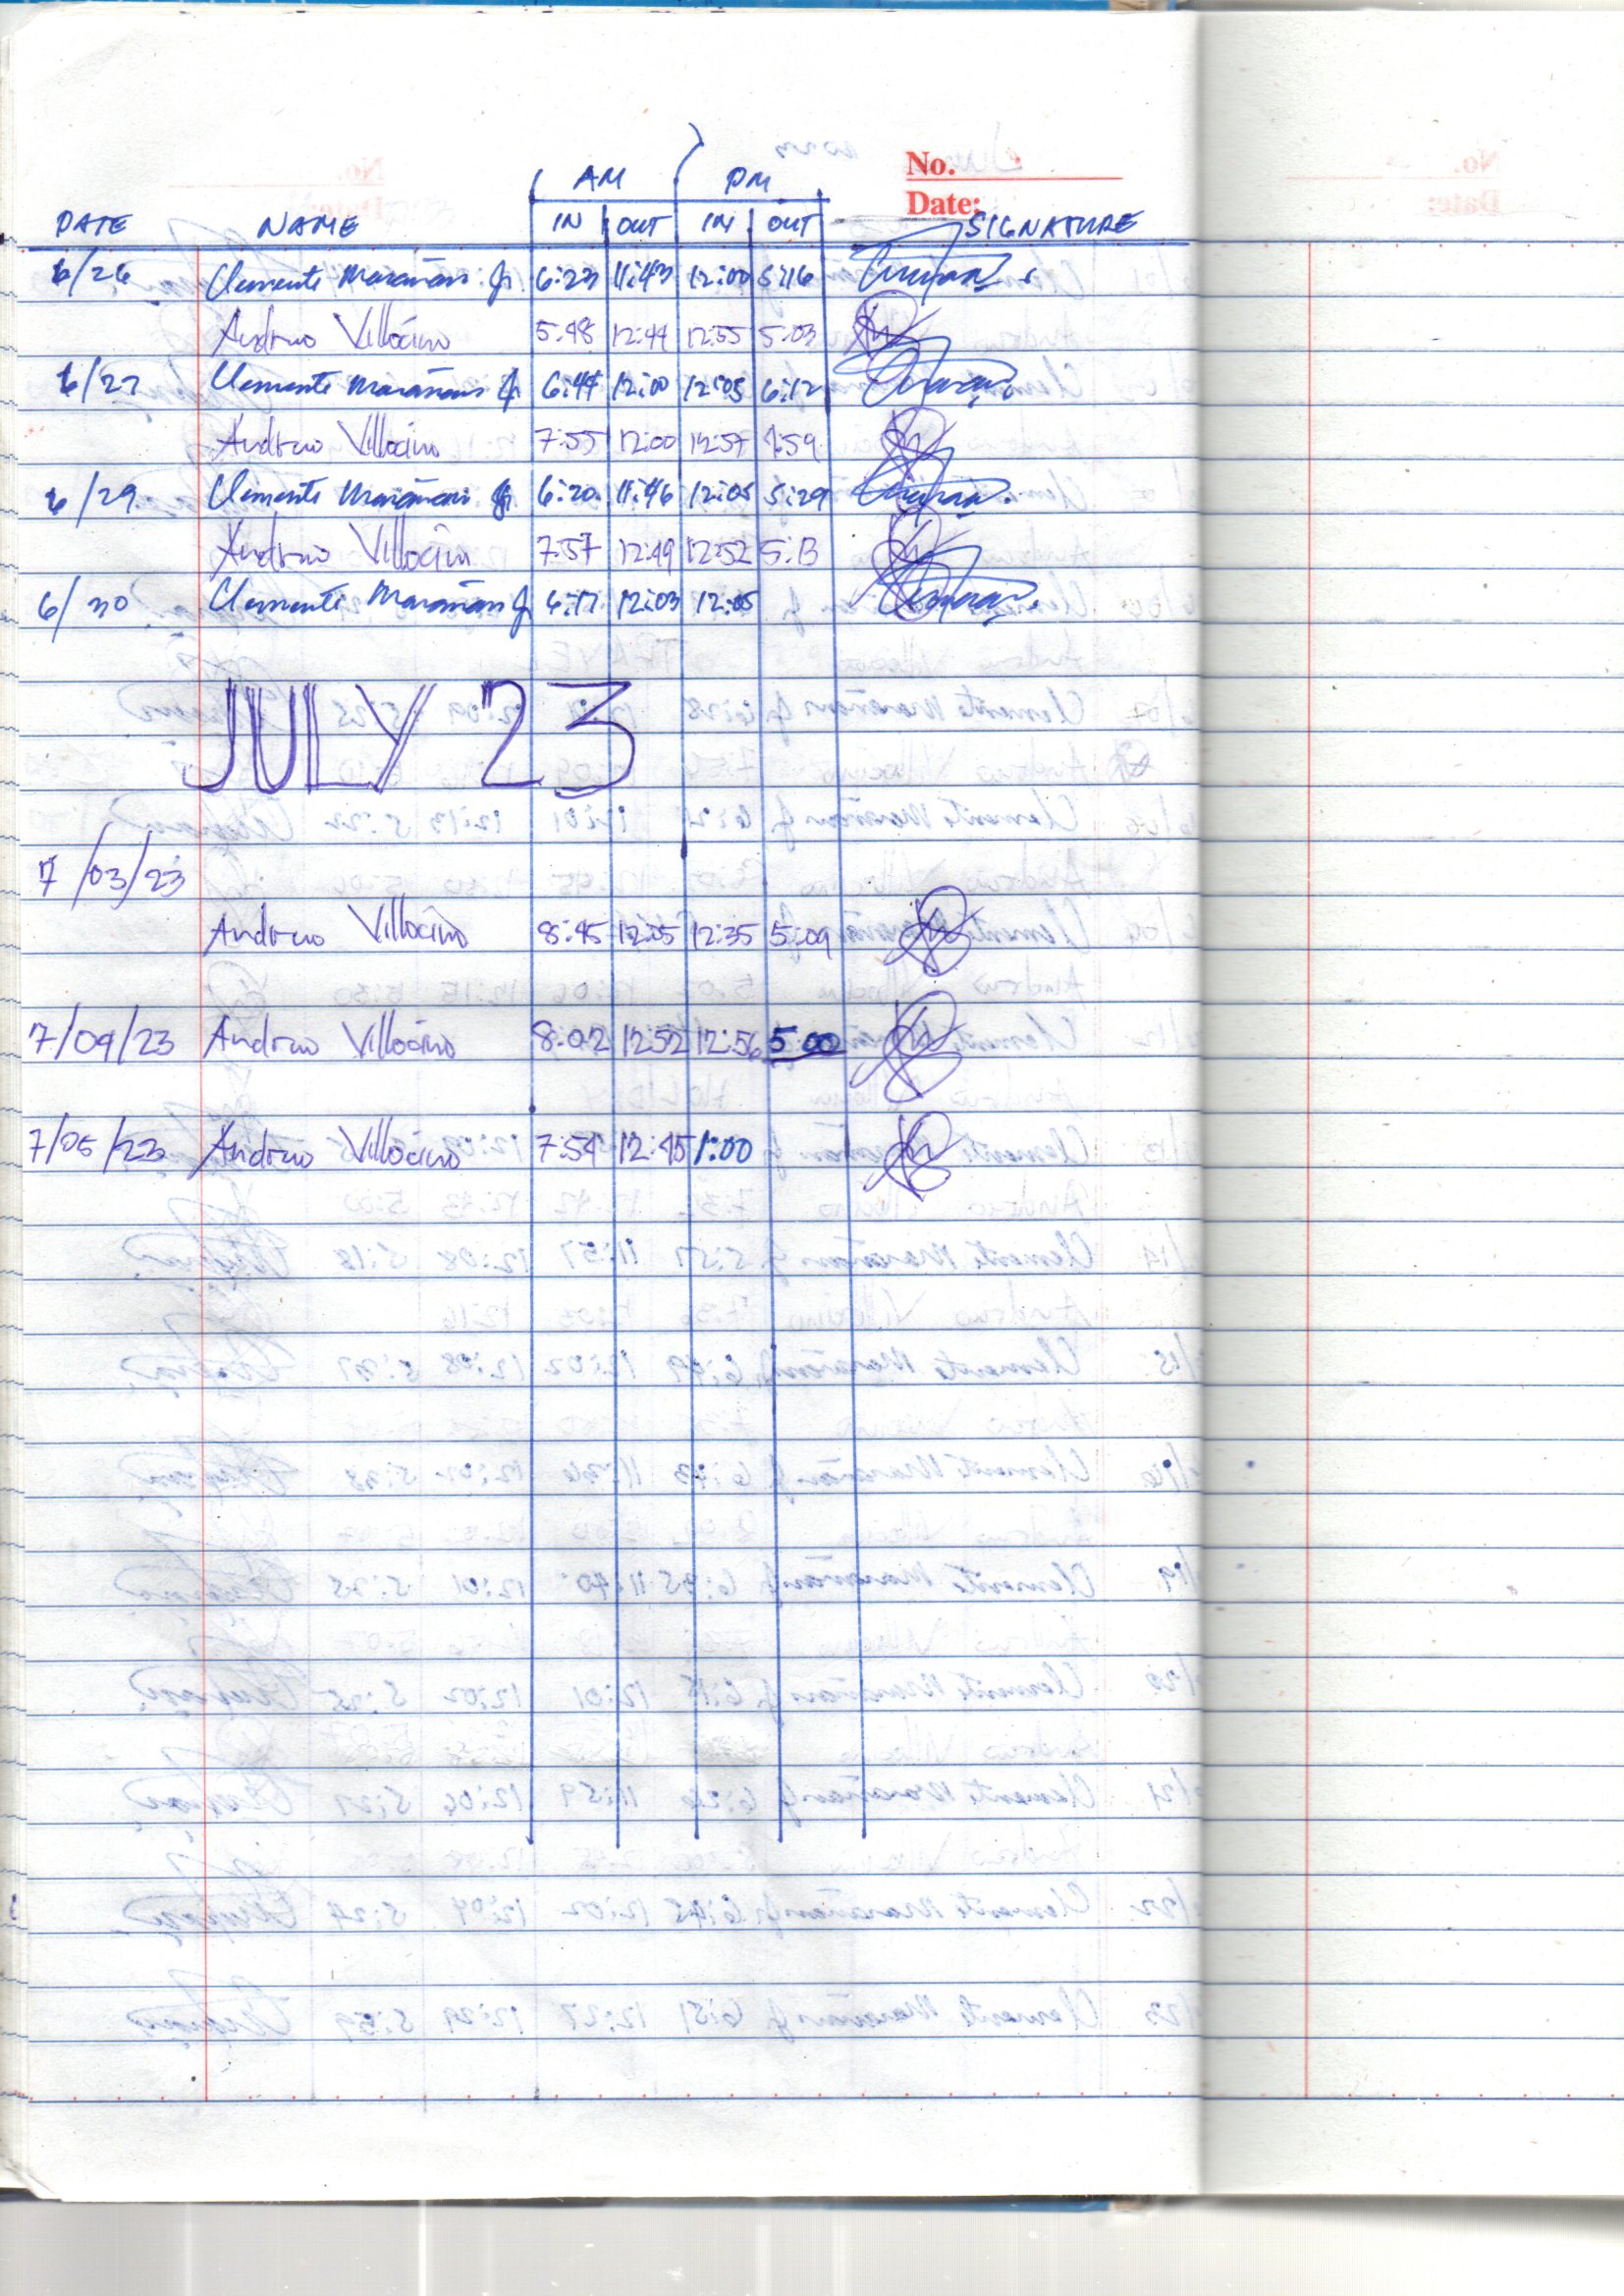 No.
Date:
AM PM
DATE NAME IN OUT IN OUT SIGNATURE
6/26 Clemente Marañon Jr. 6:23 11:43 12:00 5:16
Andrew Villocino 5:48 12:44 12:55 5:03
6/27 Clemente Marañon Jr 6:44 12:00 12:05 6:12
Andrew Villocino 7:55 12:00 12:57 :59
6/29 Clemente Marañon Jr 6:20 11:46 12:05 5:29
Andrew Villocin 7:57 12:49 12:52 5:13
6/30 Clemente Marañon Jr 6:17 12:03 12:05
JULY 23
7/03/23
Andrew Villocino 8:45 12:05 12:35 5:09
7/04/23 Andrew Villocino 8:02 12:52 12:56 5:00
7/05/23 Andrew Villocino 7:54 12:45 1:00